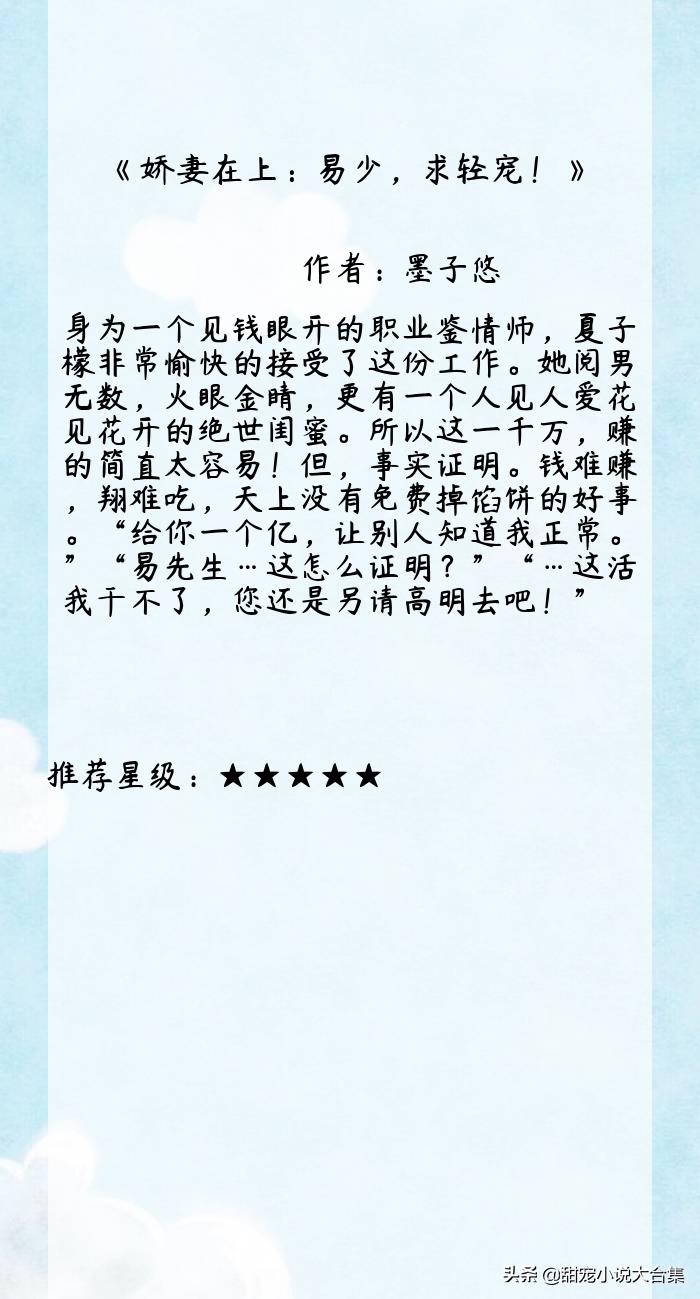 《娇妻在上：易少，求轻宠！》
作者：墨子悠
身为一个见钱眼开的职业鉴情师，夏子
檬非常愉快的接受了这份工作。她阅男
无数，火眼金睛，更有一个人见人爱花
见花开的绝世闺蜜。所以这一千万，赚
的简直太容易！但，事实证明。钱难赚
，翔难吃，天上没有免费掉馅饼的好事
。“给你一个亿，让别人知道我正常。
”“易先生…这怎么证明？”“…这活
我干不了，您还是另请高明去吧！”
推荐星级：★★★★★
头条 @甜宠小说大合集